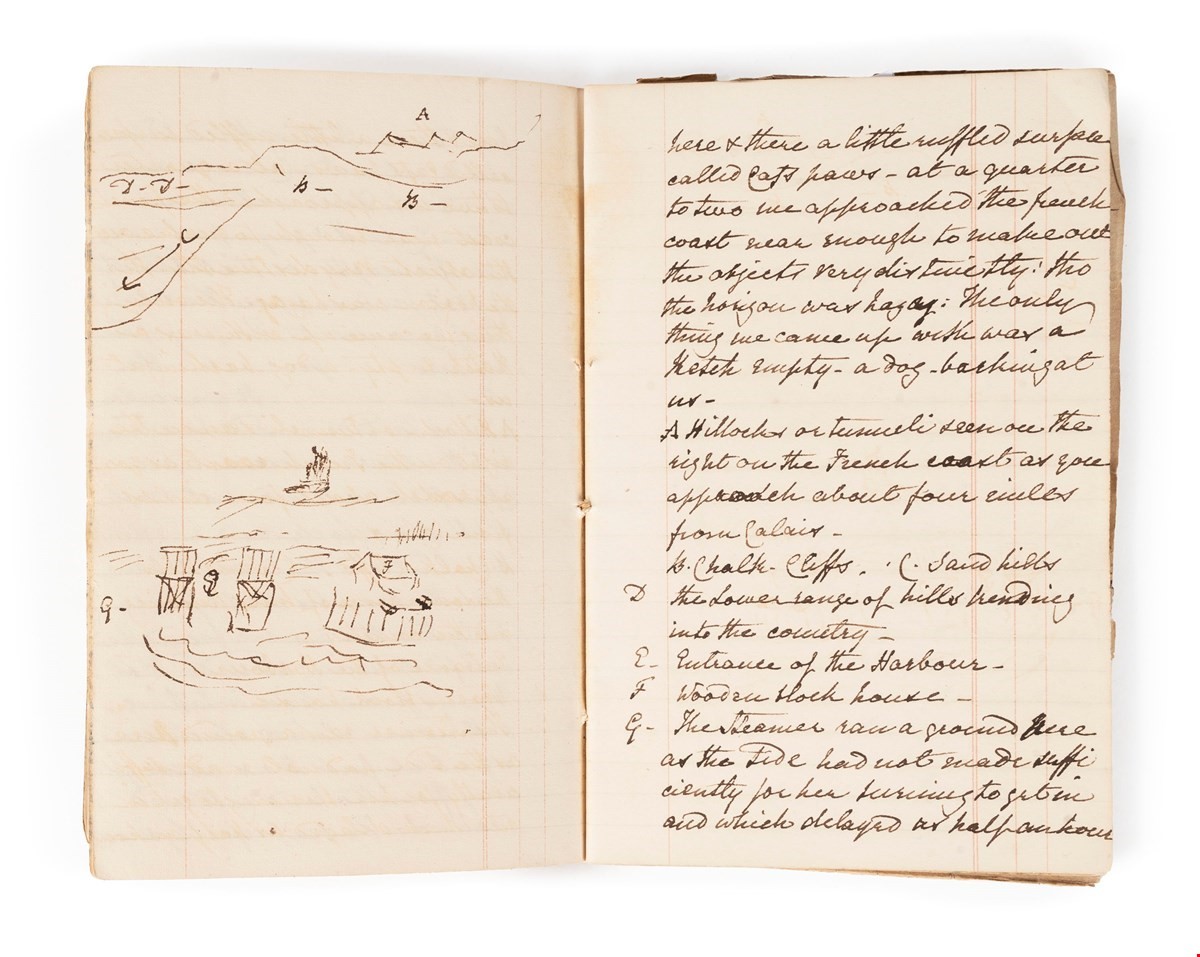 A
D - D -
B -
B -
C
F
E
D
G -
here & there a little ruffled surface
called Cats paws - at a quarter
to two we approached the french
coast near enough to make out
the objects very distinctly: tho
the horizon was hazy: The only
thing we came up with was a
Ketch empty - a dog - barking at
us -
A Hillocks or tumuli seen on the
right on the French coast as you
approach about four miles
from Calais -
B. Chalk - Cliffs . . C. Sand hills
D the Lower range of hills trending
into the country -
E - Entrance of the Harbour -
F Wooden block house -
G - The Steamer ran a ground here
as the Tide had not made suffi
ciently for her turning to get in
and which delayed us half an hour